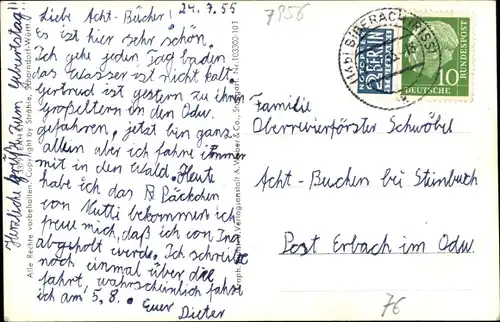 24.7.55
Liebe Acht-Bucher!
es ist hier sehr schön.
Ich gehe jeden Tag baden
das Wasser ist nicht kalt.
Gertrud ist gestern zu ihren
Großeltern in den Odw.
gefahren, jetzt bin ganz
allein aber ich fahre immer
mit in den Wald. Heute
habe ich das Päckchen
von Mutti bekommen ich
freue mich, daß ich von Ing
abgeholt werde. Ich schreibe
noch einmal über die
fahrt, wahrscheinlich fahre
ich am 5.8. Euer
Dieter
Herzliche Grüße zum Geburtstag!!
Alle Rechte vorbehalten. Copyright by
7956
BIBERACH (RISS)
NOTOPFER
2 BERLIN
STEUERMARKE
DEUTSCHE
BUNDESPOST
10
Familie
Oberrevierförster Schwöbel
Acht-Buchen bei Steinbuch
Post Erbach im Odw.
7€